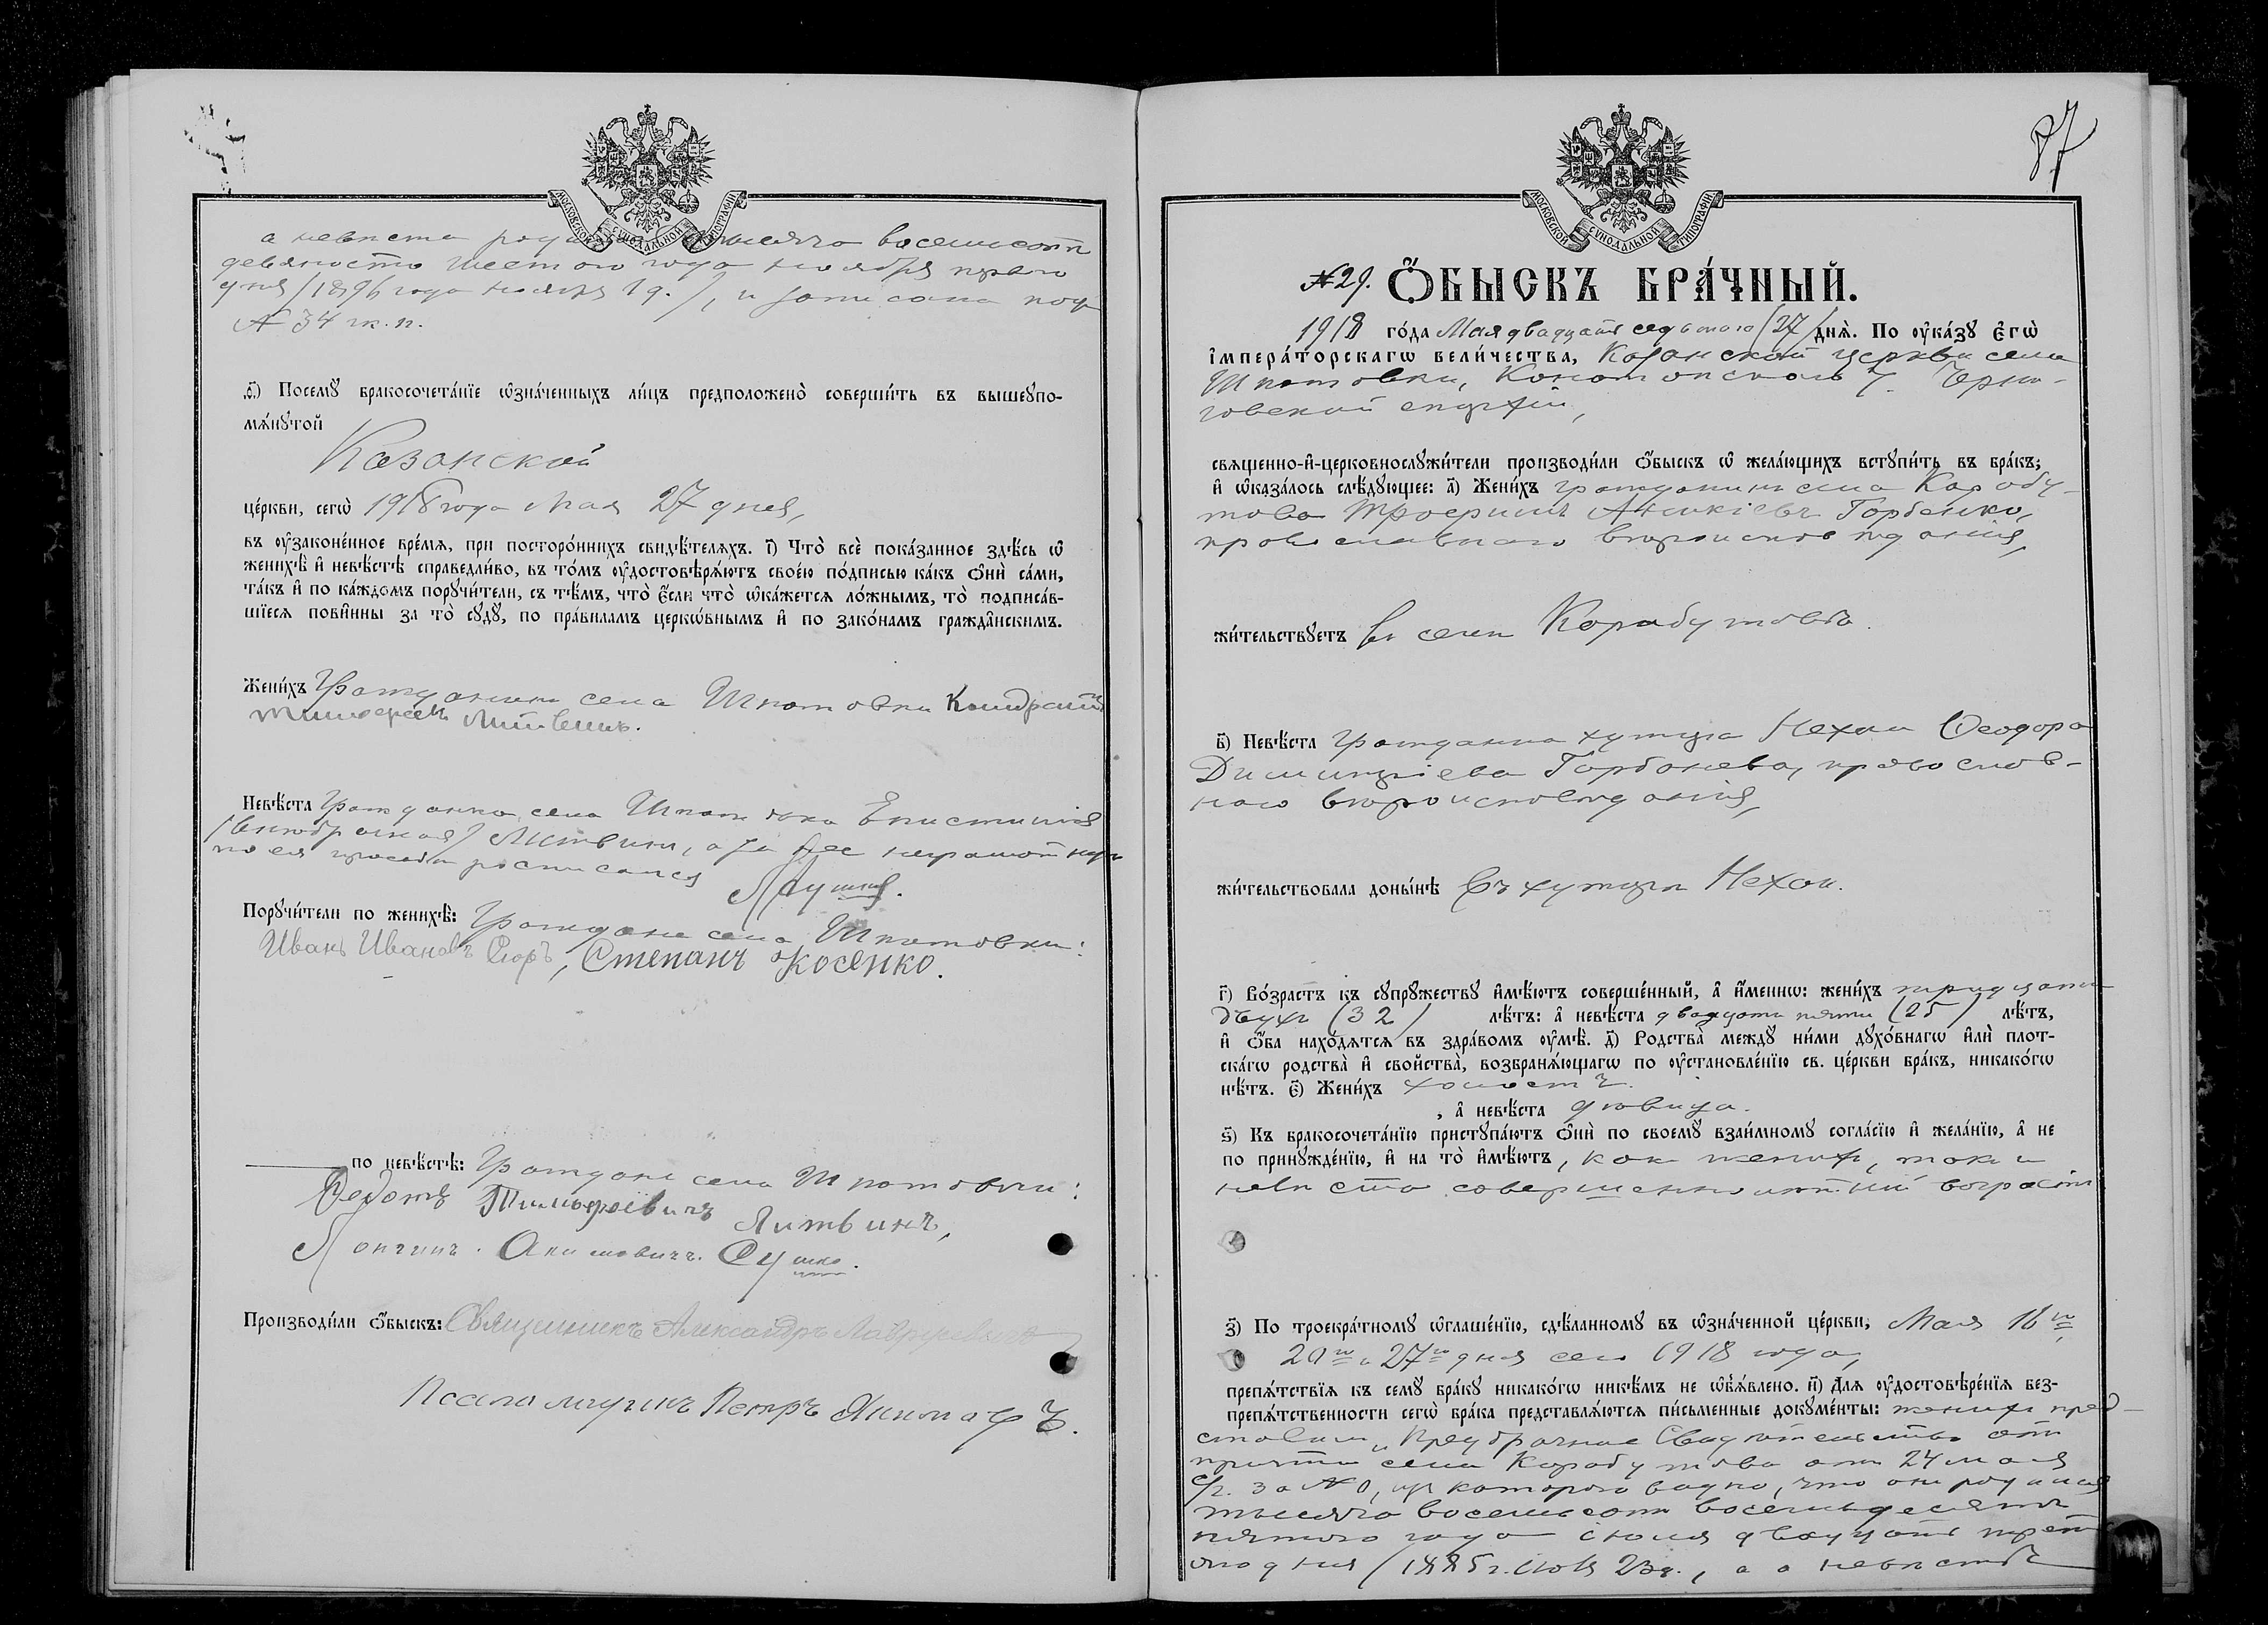 МОСКОВСКОЙ СѴНОДАЛЬНОЙ ТИПОГРАФІИ.
а невѣста тысяча восемьсотъ
девяносто шестого года ноября перваго
дня /1896 года ноября 1 д./, и записана подъ
№ 34 ж. п.
Ѳ҃) Посемꙋ̀ бракосочета́нїе ѡ҆зна́ченныхъ ли́цъ предположено̀ соверши́ть въ вышеꙋпо-
мѧ́нꙋтой
Казанской
це́ркви, сегѡ̀ 1918 года Мая 27 дня,
въ ᲂу҆законе́нное вре́мѧ, при посторо́ннихъ свидѣ́телѧхъ. і҃) Что̀ всѐ пока́занное здѣ́сь ѡ҆
женихѣ̀ и҆ невѣ́стѣ справедли́во, въ то́мъ ᲂу҆достовѣрѧ́ютъ свое́ю по́дписью ка́къ ѻ҆нѝ са́ми,
та́къ и҆ по ка́ждомъ порꙋчи́тели, съ тѣ́мъ, что̀ є҆́сли что̀ ѡ҆ка́жетсѧ ло́жнымъ, то̀ подписа́в-
шїесѧ пови́нны за то̀ сꙋдꙋ̀, по пра́виламъ церко́внымъ и҆ по зако́намъ гражда́нскимъ.
Жени́хъ Гражданинъ села Шпотовки Кондратъ
Тимофеевъ Литвинъ.
Невѣ́ста Гражданка села Епистимія
Литвинъ, а за нее неграмотную
по ея просьбѣ росписался
Порꙋчи́тели по женихѣ̀: Граждане села Шпотовки:
Иванъ Ивановъ Сюръ, Степанъ Косенко.
по невѣ́стѣ: Граждане села Шпотовки:
Федотъ Тимофеевичъ Литвинъ,
Лонгинъ Акимовичъ Сушко.
Производи́ли ѻ҆́быскъ: Священникъ Александръ
Псаломщикъ Петръ
87
МОСКОВСКОЙ СѴНОДАЛЬНОЙ ТИПОГРАФІИ.
№ 29. Ѻ҆́БЫСКЪ БРА́ЧНЫЙ.
1918 го́да Мая двадцать седьмого /27/ днѧ̀. По ᲂу҆ка́зꙋ Є҆гѡ̀
і҆мпера́торскагѡ вели́чества, Казанской церкви села
Шпотовки, Конотопскаго у. Черни-
говской епархіи,
свѧщенно-и҆-церковнослꙋжи́тели производи́ли ѻ҆́быскъ ѡ҆ жела́ющихъ встꙋпи́ть въ бра́къ;
и҆ ѡ҆каза́лось слѣ́дꙋющее: а҃) Жени́хъ гражданинъ села Коробу-
това Аникіевъ Горбенко,
православнаго вѣроисповѣданія,
жи́тельствꙋетъ въ селѣ Коробутовѣ.
в҃) Невѣ́ста гражданка хутора Нехаи Ѳеодора
Димитріева Горбонева, православ-
наго вѣроисповѣданія,
жи́тельствовала доны́нѣ въ хуторѣ Нехаи.
г҃) Во́зрастъ къ сꙋпрꙋ́жествꙋ и҆мѣ́ютъ соверше́нный, а҆ и҆́меннѡ: жени́хъ тридцати
двухъ /32/ лѣ́тъ: а҆ невѣ́ста двадцати пяти /25/ лѣ́тъ,
и҆ ѻ҆́ба нахо́дѧтсѧ въ здра́вомъ ᲂу҆мѣ̀. д҃) Родства̀ междꙋ̀ ни́ми дꙋхо́внагѡ и҆лѝ плот-
ска́гѡ родства̀ и҆ свойства̀, возбранѧ́ющагѡ по ᲂу҆становле́нїю св. це́ркви бра́къ, никако́гѡ
нѣ́тъ. є҃) Жени́хъ холостъ
, а҆ невѣ́ста дѣвица.
ѕ҃) Къ бракосочета́нїю пристꙋпа́ютъ ѻ҆нѝ по своемꙋ̀ взаи́мномꙋ согла́сїю и҆ жела́нїю, а҆ не
по принꙋжде́нїю, и҆ на то̀ и҆мѣ́ютъ, какъ женихъ, такъ и
невѣста совершеннолѣтній возрастъ
з҃) По троекра́тномꙋ ѡ҆глаше́нїю, сдѣ́ланномꙋ въ ѡ҆зна́ченной це́ркви, Мая 16го,
20го и 27го дня сего 1918 года,
препѧ́тствїѧ къ семꙋ̀ бра́кꙋ никако́гѡ никѣ́мъ не ѡ҆б̾ѧ́влено. и҃) Длѧ ᲂу҆достовѣре́нїѧ без-
препѧ́тственности сегѡ̀ бра́ка представлѧ́ютсѧ пи́сьменные докꙋме́нты: женихъ пред-
ставилъ Предбрачное Свидѣтельство отъ
причта села Коробутова отъ 24 мая
с/г. за № 0, изъ котораго видно, что онъ родился
тысяча восемьсотъ восемьдесятъ
пятого года іюля двадцать треть-
яго дня /1885 г. Іюля 23 д., а о невѣстѣ